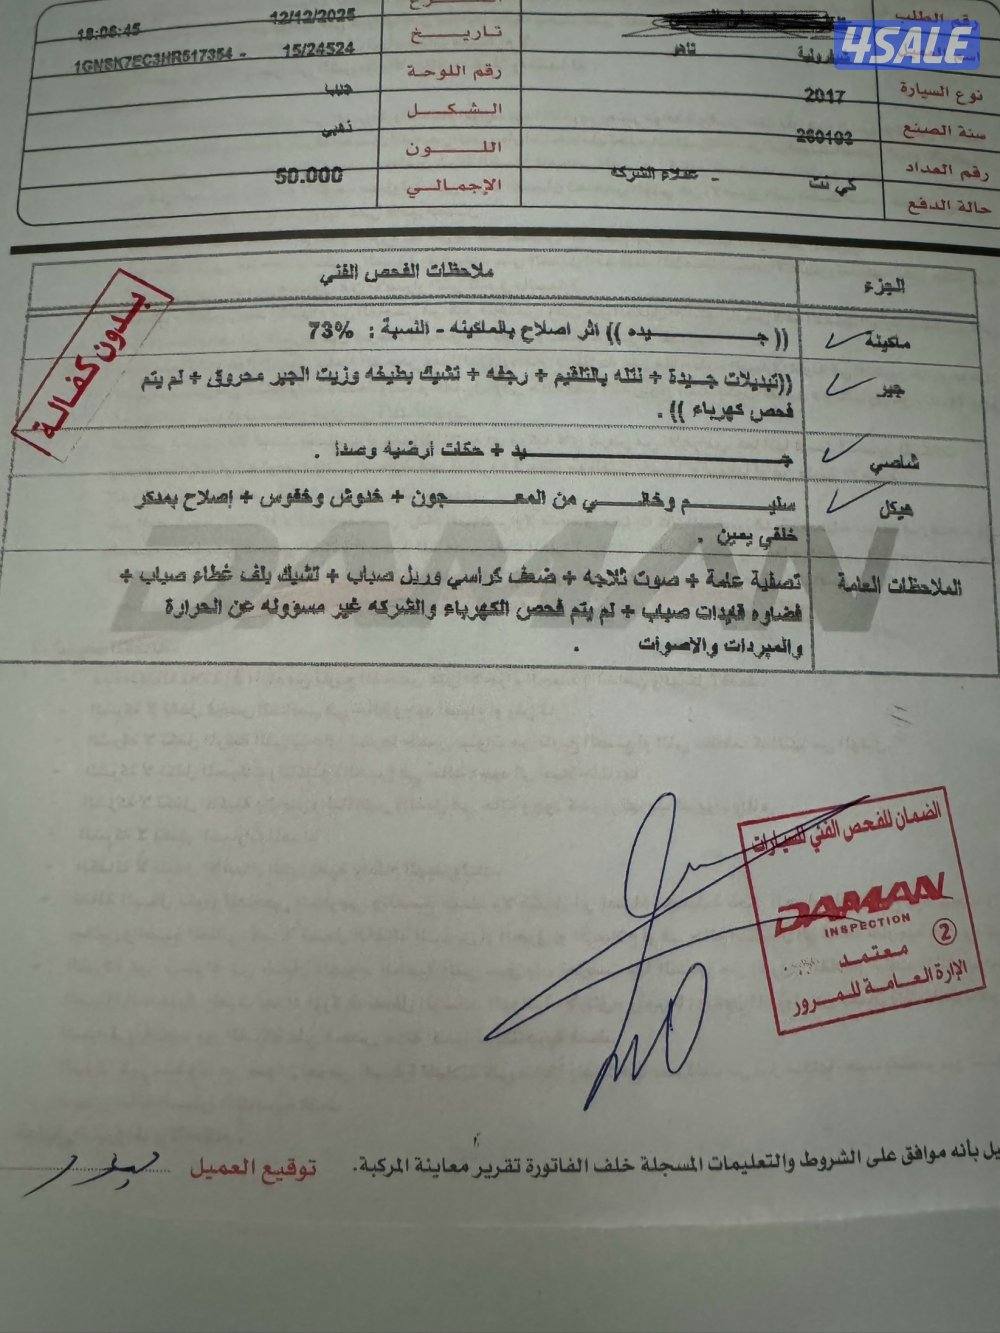 4SALE
رقم الطلب
تاريخ 12/12/2025 18:06:45
شيفروليه تاهو
رقم اللوحة 15/24524 - 1GNSK7EC3HR517354
نوع السيارة 2017
الشكل جيب
سنة الصنع 260103
اللون ذهبي
رقم العداد كي نت - عملاء الشركة
الإجمالي 50.000
حالة الدفع
الجزء ملاحظات الفحص الفني
بدون كفالة
ماكينة (( جيده )) اثر اصلاح بالماكينه - النسبة : 73%
جير ((تبديلات جيدة + نتله بالتلقيم + رجفه + تشيك بطيخه وزيت الجير محروق + لم يتم
فحص كهرباء )) .
شاصي جيد + حكات ارضيه وصدا .
هيكل سليم وخالي من المعجون + خدوش وخفوس + إصلاح بمدكر
خلفي يمين .
الملاحظات العامة تصفية علمة + صوت ثلاجه + ضعف كراسي وربل صباب + تشيك بلف غطاء صباب +
فضاوه قايدات صباب + لم يتم فحص الكهرباء والشركه غير مسؤوله عن الحرارة
والمبردات والاصوات .
DAMAN
الضمان للفحص الفني للسيارات
DAMAN
INSPECTION
2
معتمد
الإرة العامة للمرور
يل بأنه موافق على الشروط والتعليمات المسجلة خلف الفاتورة تقرير معاينة المركبة. توقيع العميل